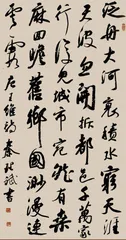 泛舟大河裏積水窮天涯
天波忽開拆郡邑千萬家
行復見城市宛然有桑
麻回瞻舊鄉國渺漫連
雲霞 王維詩 書